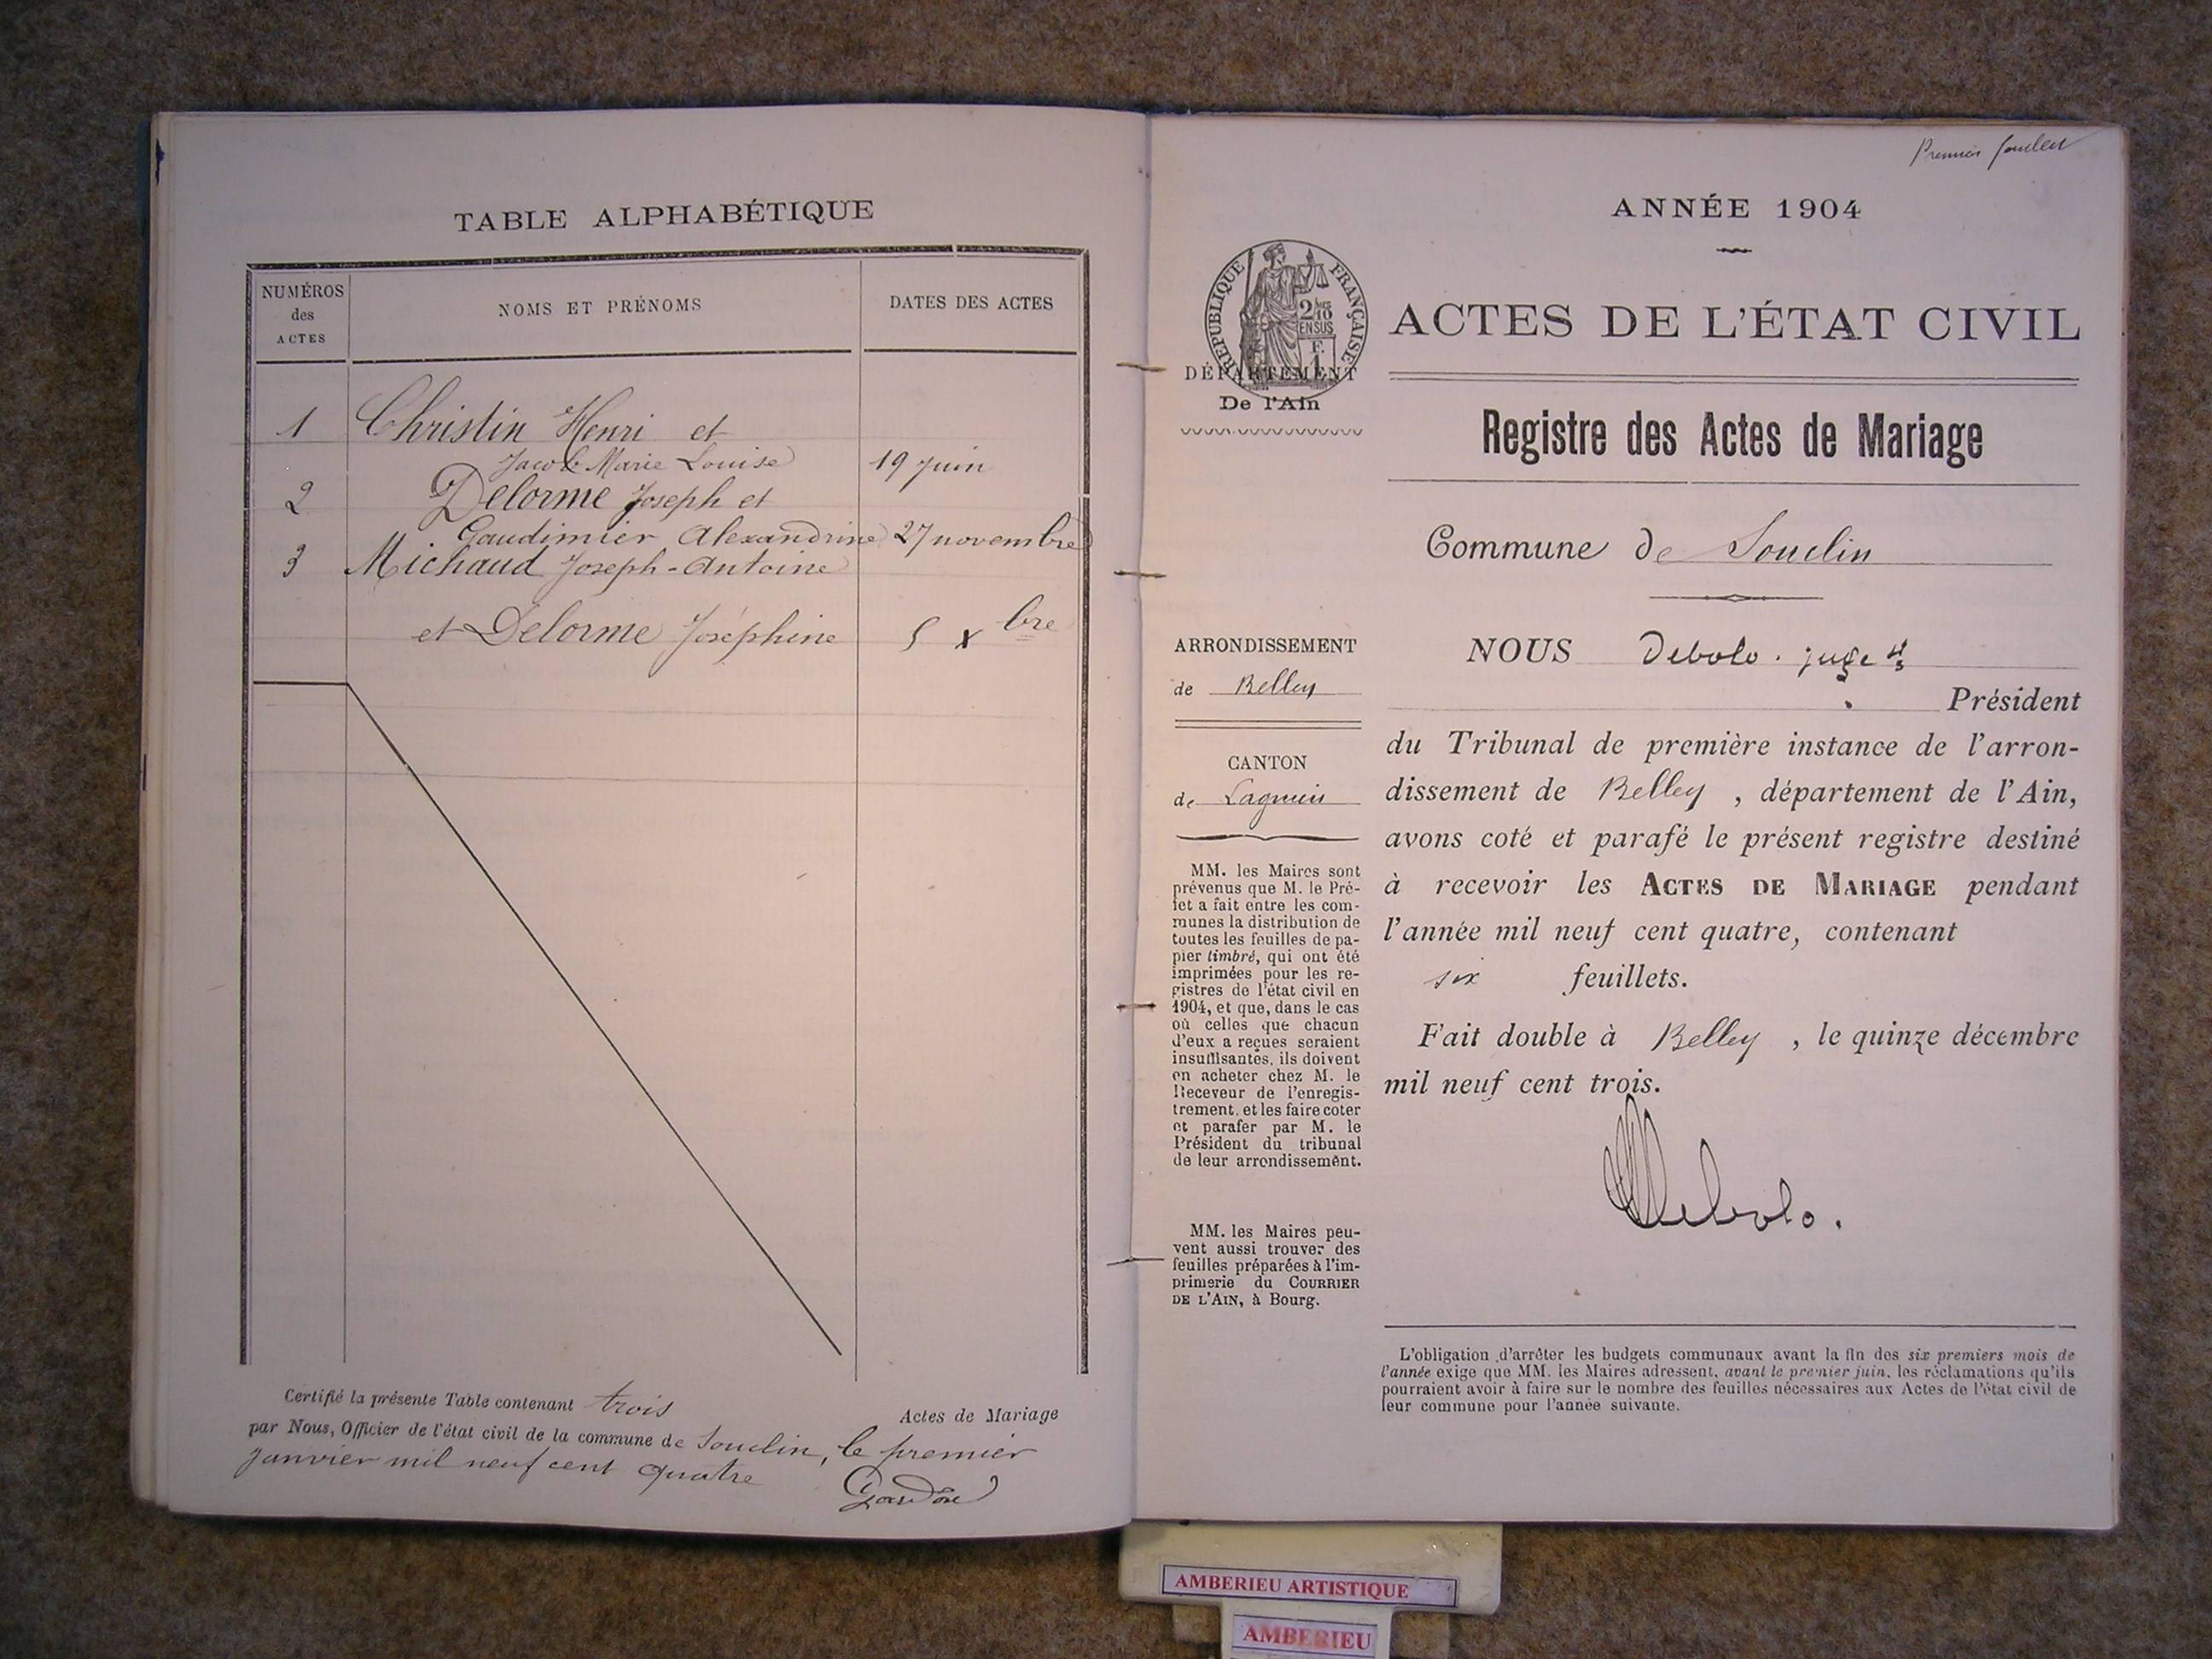 TABLE ALPHABÉTIQUE
NUMÉROS
des
ACTES
NOMS ET PRÉNOMS
DATES DES ACTES
1 Christin Henri et
Jacob Marie Louise 19 Juin
2 Delorme Joseph et
Gaudimier Alexandrine 27 novembre
3 Michaud Joseph-Antoine
et Delorme Joséphine 5 xbre
Certifié la présente Table contenant trois Actes de Mariage
par Nous, Officier de l'état civil de la commune de Souclin, le premier
janvier mil neuf cent quatre
Premier feuillet
ANNÉE 1904
RÉPUBLIQUE FRANÇAISE
2/10
EN SUS
F.
1
ACTES DE L'ÉTAT CIVIL
DÉPARTEMENT
De l'Ain
Registre des Actes de Mariage
Commune de Souclin
ARRONDISSEMENT
de Belley
CANTON
de Lagnieu
MM. les Maires sont
prévenus que M. le Pré-
fet a fait entre les com-
munes la distribution de
toutes les feuilles de pa-
pier timbré, qui ont été
imprimées pour les re-
gistres de l'état civil en
1904, et que, dans le cas
où celles que chacun
d'eux a reçues seraient
insuffisantes, ils doivent
en acheter chez M. le
Receveur de l'enregis-
trement, et les faire coter
et parafer par M. le
Président du tribunal
de leur arrondissement.
MM. les Maires peu-
vent aussi trouver des
feuilles préparées à l'im-
primerie du COURRIER
DE L'AIN, à Bourg.
NOUS Debolo. juge
Président
du Tribunal de première instance de l'arron-
dissement de Belley, département de l'Ain,
avons coté et parafé le présent registre destiné
à recevoir les ACTES DE MARIAGE pendant
l'année mil neuf cent quatre, contenant
six feuillets.
Fait double à Belley, le quinze décembre
mil neuf cent trois.
Debolo.
L'obligation d'arrêter les budgets communaux avant la fin des six premiers mois de
l'année exige que MM. les Maires adressent, avant le premier juin, les réclamations qu'ils
pourraient avoir à faire sur le nombre des feuilles nécessaires aux Actes de l'état civil de
leur commune pour l'année suivante.
AMBERIEU ARTISTIQUE
AMBERIEU